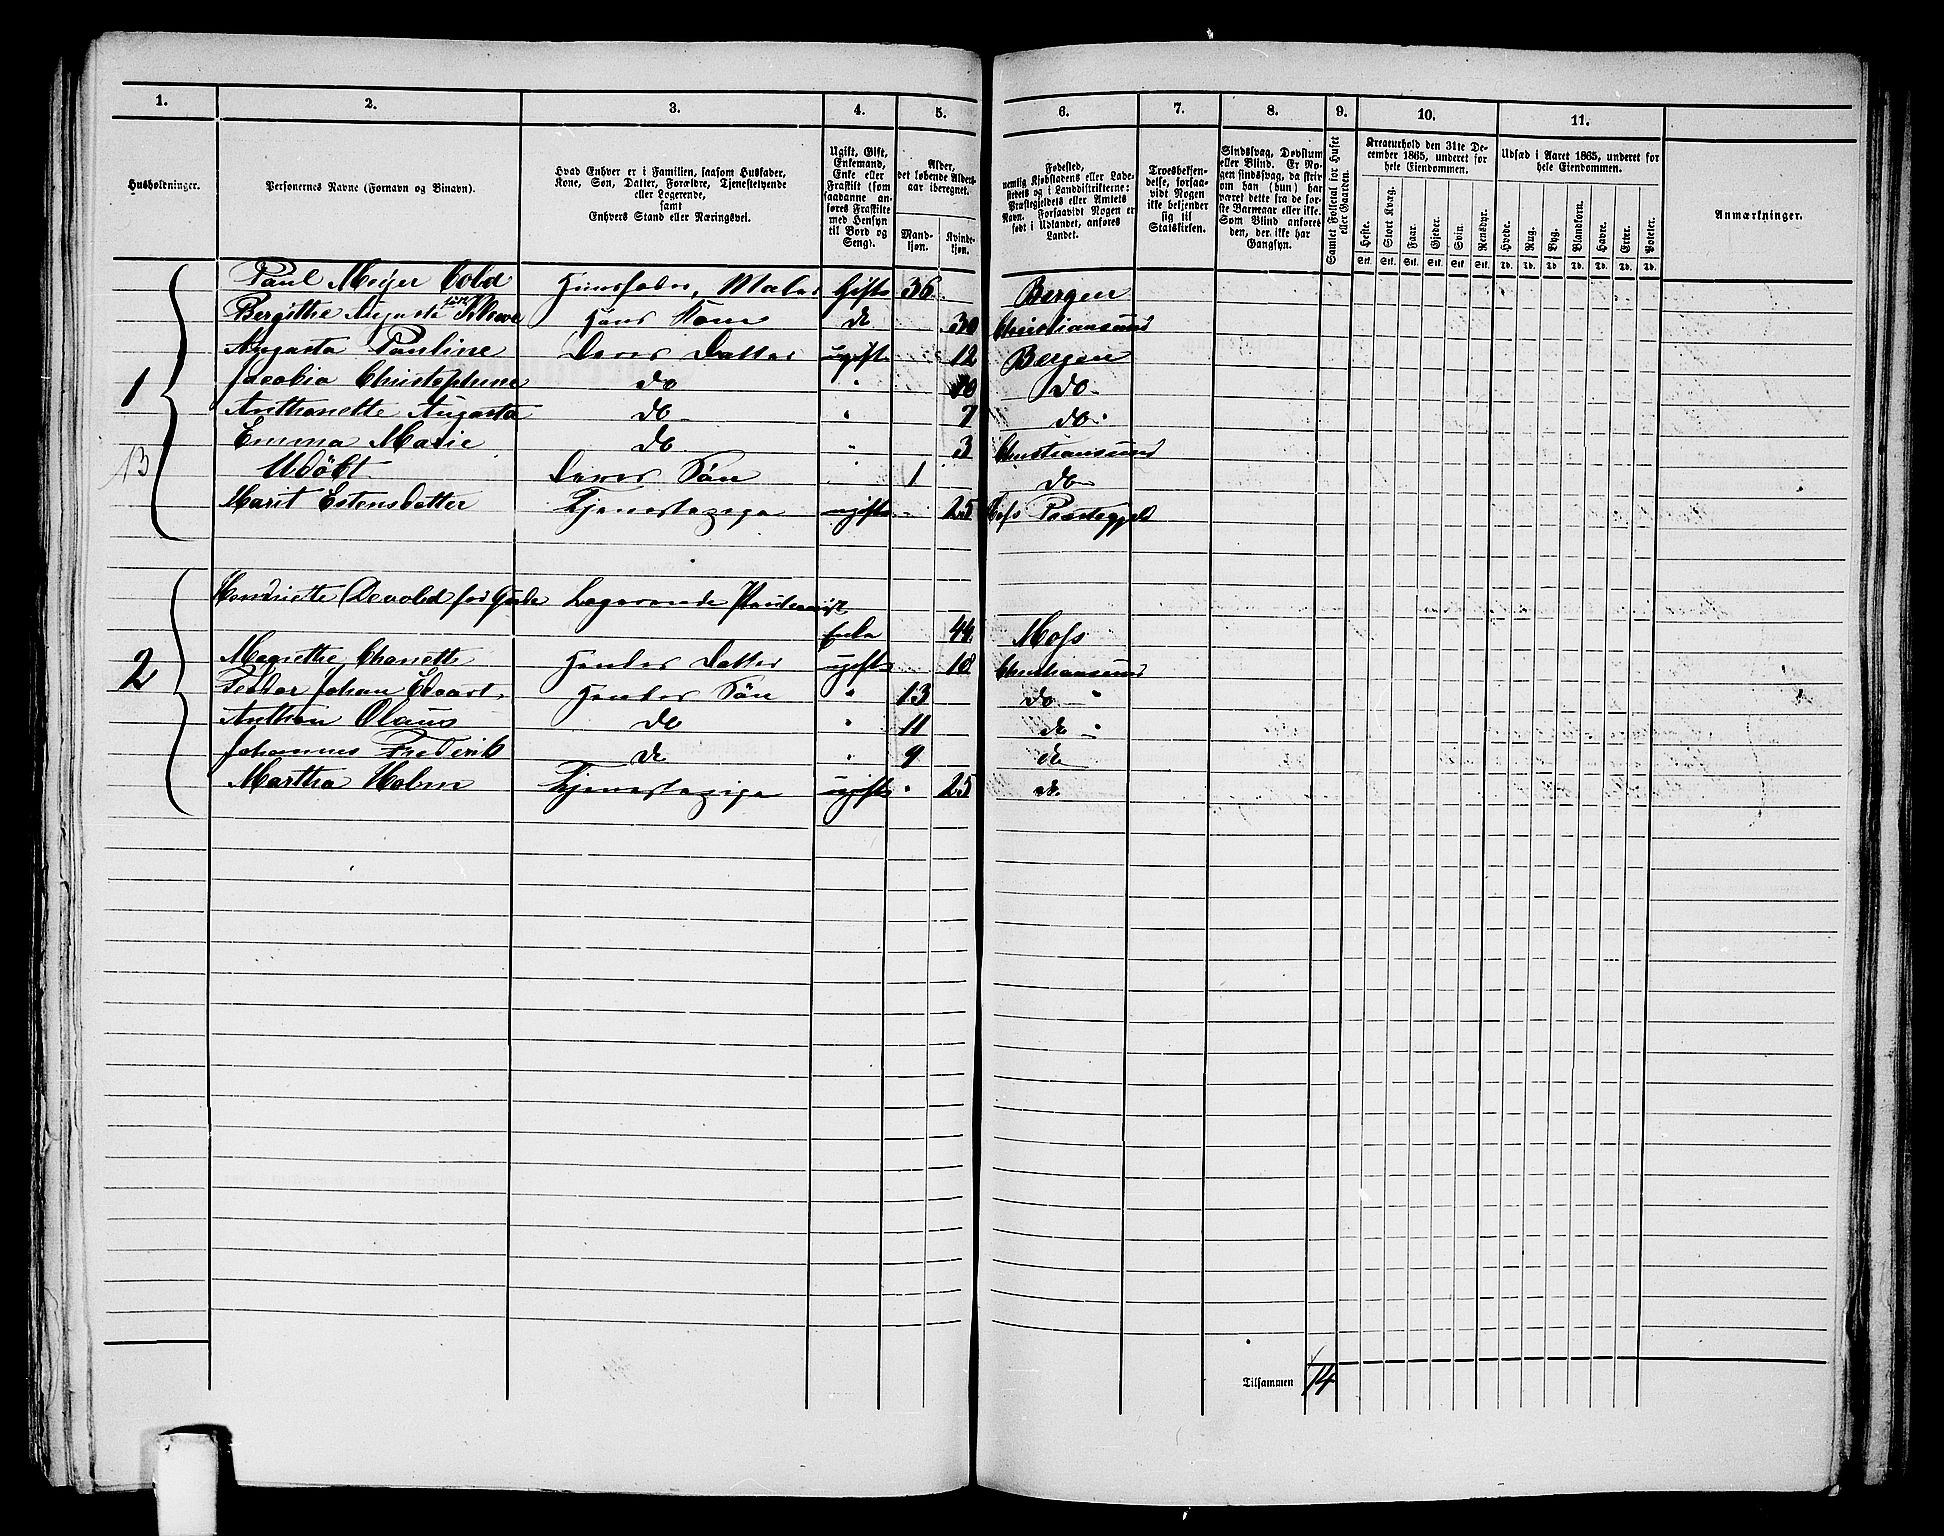 1. 2. 3. 4. 5. 6. 7. 8. 9. 10. 11.
Husholdninger.
Personernes Navne (Fornavn og Binavn).
Hvad Enhver er i Familien, saasom Husfader,
Kone, Søn, Datter, Forældre, Tjenestetyende
eller Logerende,
samt
Enhvers Stand eller Næringsvei.
Ugift, Gift,
Enkemand,
Enke eller
Fraskilt (som
saadanne an-
føres Fraskilte
med Hensyn
til Bord og
Seng).
Alder,
det løbende Alders-
aar iberegnet.
Mand-
kjøn.
Kvinde-
kjøn.
Fødested,
nemlig Kjøbstadens eller Lade-
stedets og i Landdistrikterne:
Præstegjeldets eller Amtets
Navn. Forsaavidt Nogen er
født i Udlandet, anføres
Landet.
Troesbekjen-
delse, forsaa-
vidt Nogen
ikke bekjender
sig til
Statskirken.
Sindssvag, Døvstum
eller Blind. Er No-
gen sindssvag, da skriv
om han (hun) har
været dette fra de før-
ste Barneaar eller ikke.
Som Blind anføres
den, der ikke har
Gangsyn.
Samlet Folketal for Huset
eller Gaarden.
Kreaturhold den 31te De-
cember 1865, underet for
hele Eiendommen.
Heste. Stort Kvæg. Faar. Gjeder. Svin. Rensdyr.
Stk. Stk. Stk. Stk. Stk. Stk.
Udsæd i Aaret 1865, underet for
hele Eiendommen.
Hvede. Rug. Byg. Blandkorn. Havre. Erter. Poteter.
Td. Td. Td. Td. Td. Td. Td.
Anmærkninger.
1 Paul Meyer Cold Huusfader, Maler Gift 36 Bergen
Bergithe Auguste født Hans Kone do 30 Christiansund
Augusta Pauline Deres Datter ugift 12 Bergen
Jacobia Christephine do " 10 Do
Anthonette Augusta do " 7 do
Emma Marie do " 3 Christiansund
13 Udöbt Deres Søn " 1 do
Marit Estensdatter Tjenestepige ugift 25 Præstegjeld
2 Hendriette Devold Logerende
Enke 44 Moss
Magrethe Chanette Hendes Datter ugift 18 Christiansund
Johan Edvart Hendes Søn " 13 do "
Anthon Olaus do " 11 do "
Johannes Frederik do " 9 do
Martha Holm Tjenestepige ugift 25 do
Tilsammen 14